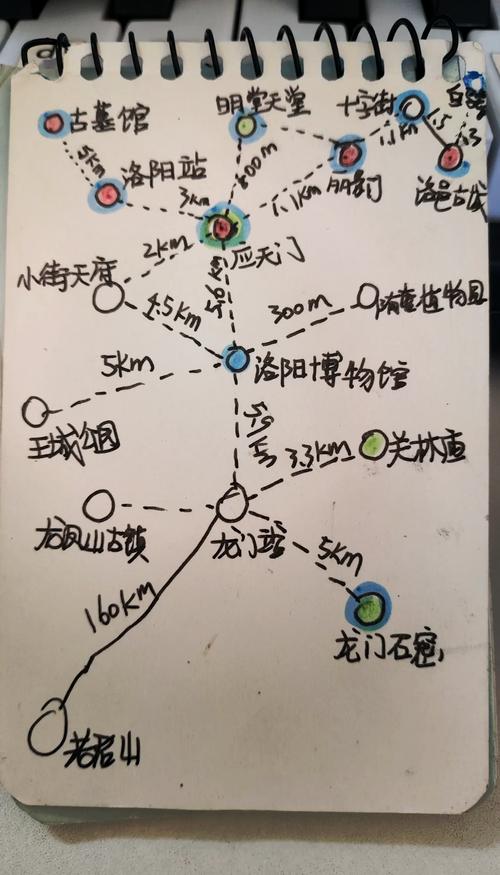 古墓馆
明堂天堂
十字街
5km
洛阳站
800m
1.1km
1.5
3km
1.1km
丽景门
洛邑古城
2km
应天门
小街天府
4.5km
300m
隋唐植物园
5km
洛阳博物馆
王城公园
3.3km
关林庙
龙凤山古镇
龙门站
5km
160km
龙门石窟
老君山